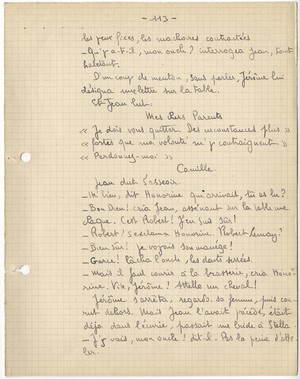 - 113 -
les yeux fixes, les mâchoires contractées
- Qu'y a-t-il, mon oncle ? interrogea Jean, tout
haletant.
D'un coup de menton, sans parler, Jérôme lui
désigna une lettre sur la table.
Et Jean lut.
Mes chers Parents
« Je dois vous quitter. Des circonstances plus »
« fortes que ma volonté m'y contraignent »
« Pardonnez-moi »
Camille.
Jean dut s'asseoir.
- Eh bien, dit Honorine qui arrivait, tu as lu ?
- Bon Dieu ! cria Jean, assénant sur la table une
claque. C'est Robert ! J'en suis sûr !
- Robert ! s'exclama Honorine. Robert Lenay ?
- Bien sûr ! Je voyais son manège !
- Garce ! lâcha l'oncle, les dents serrées.
- Mais il faut courir à la brasserie, cria Hono-
rine. Vite, Jérôme ! Attelle un cheval !
Jérôme s'arrêta, regarda sa femme, puis cou-
rut dehors. Mais Jean l'avait précédé, était
déjà dans l'écurie, passait une bride à Stella.
- J'y vais, mon oncle ! dit-il. Pas la peine d'atte-
ler.